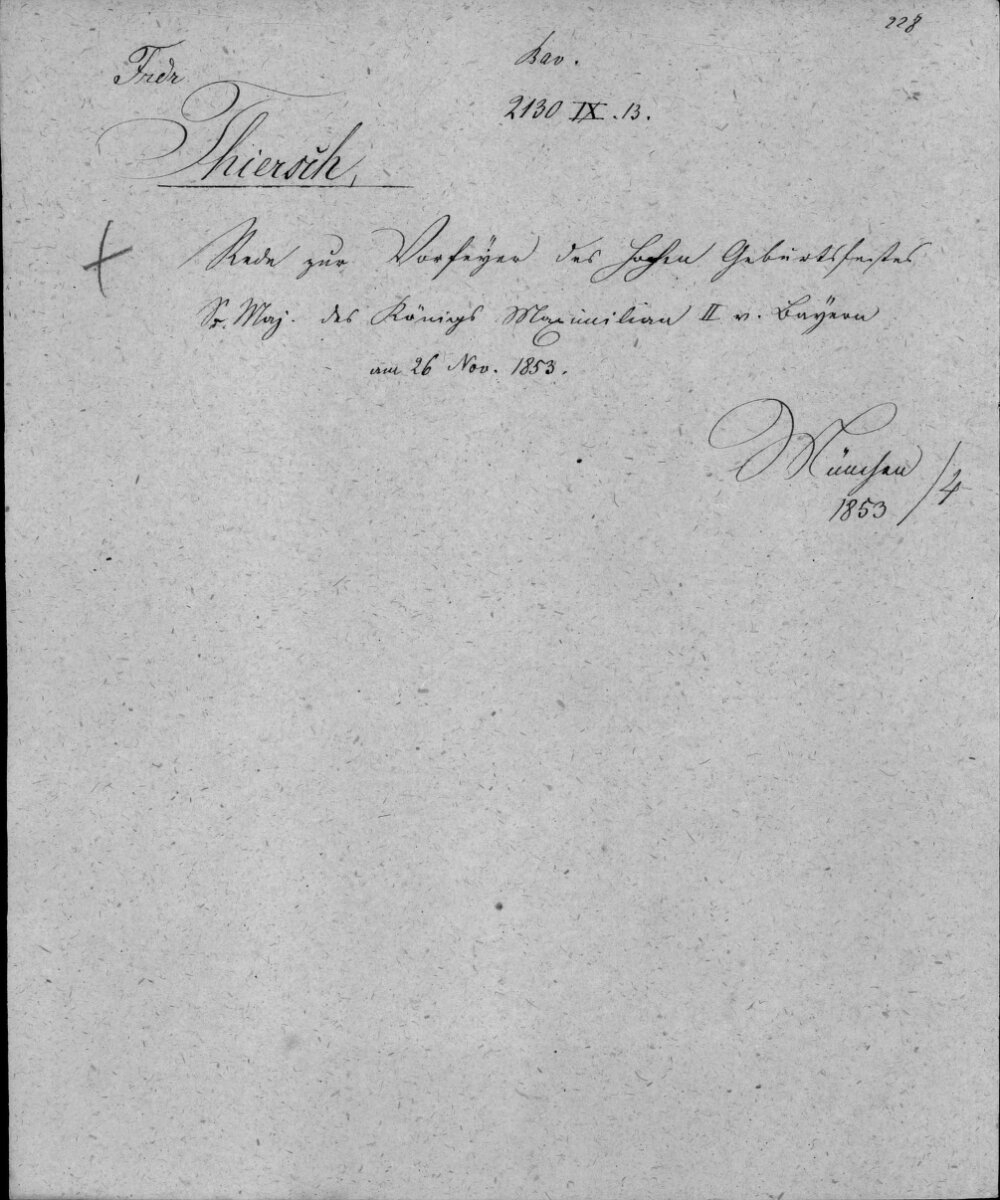 228
Bav.
2130 IX.13.
Frdr
Thiersch,
Rede zur Vorfeyer des hohen Geburtsfestes
Sr. Maj. des Königs Maximilian II v. Bayern
am 26 Nov. 1853.
München
1853 /4